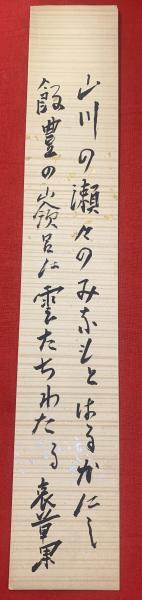 山川の瀬々のみなもとはるかにし
飯豊の嶺呂に雲たちわたる 哀草果